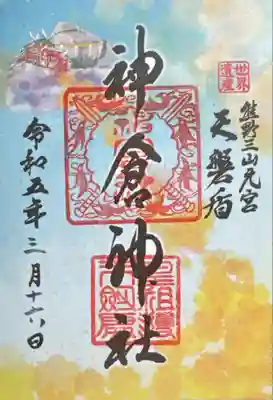 世界遺産
熊野三山元宮
天磐盾
神倉神社
令和五年三月十六日